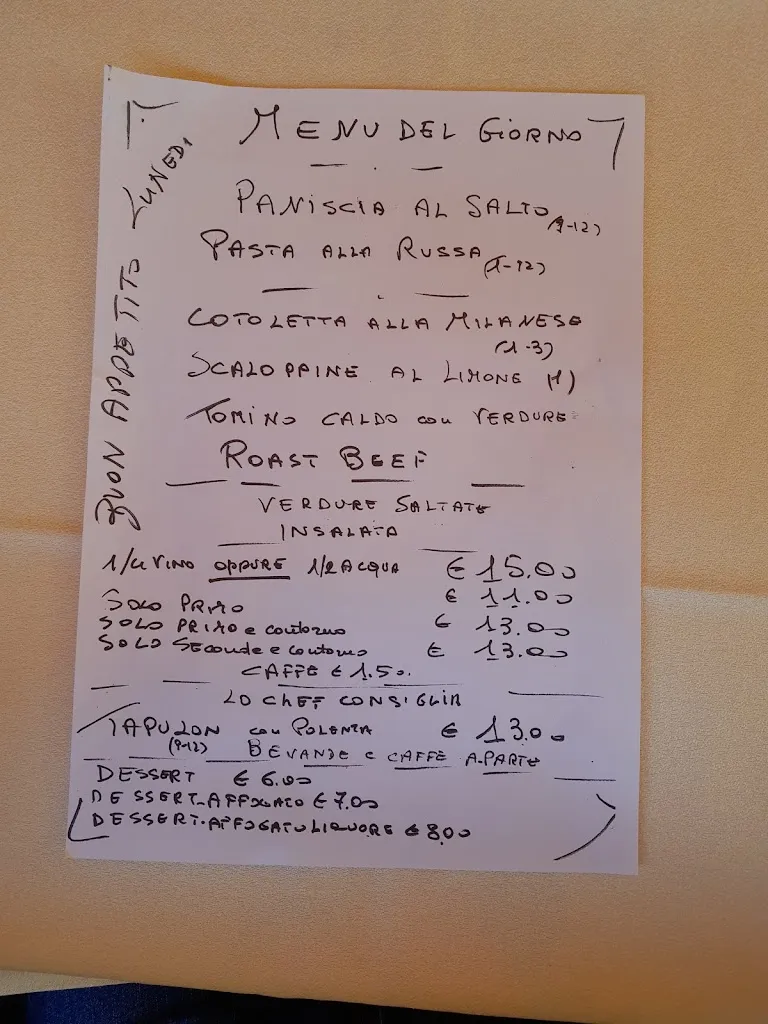 MENU DEL GIORNO
LUNEDI
BUON APPETITO
PANISCIA AL SALTO (9-12)
PASTA ALLA RUSSA
COTOLETTA ALLA MILANESE
(1-3)
SCALOPPINE AL LIMONE (1)
TOMINO CALDO con VERDURE
ROAST BEEF
VERDURE SALTATE
INSALATA
1/4 VINO OPPURE 1/2 ACQUA € 15.00
SOLO PRIMO € 11.00
SOLO PRIMO e contorno € 13.00
SOLO SEConde e contorno € 13.00
CAFFE € 1.50.
LO CHEF CONSIGLIA
TAPULON con POLENTA € 13.00
(9-12) BEVANDE e CAFFÈ A PARTE
DESSERT € 6.00
DESSERT-AFFOGATO € 7.00
DESSERT-AFFOGATO LIQUORE € 8.00